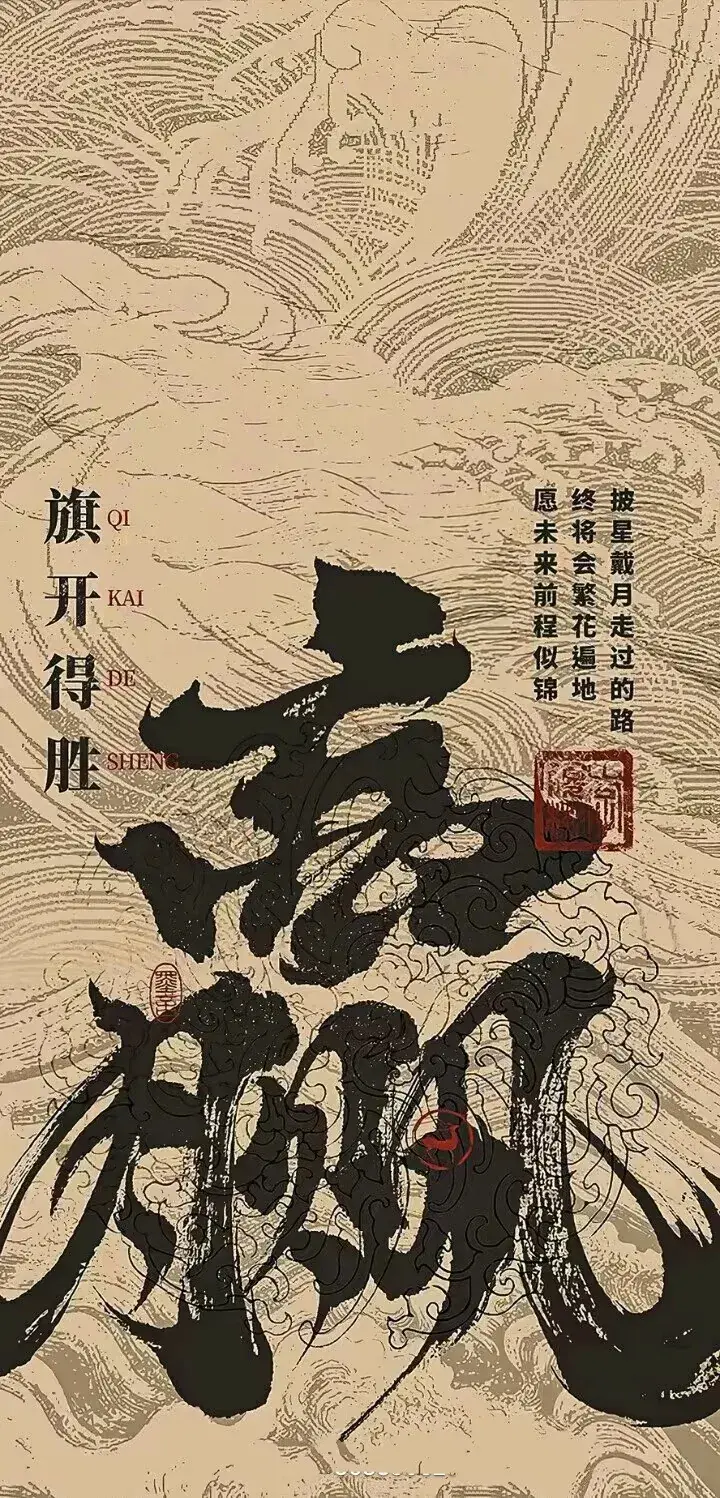 旗开得胜
QI
KAI
DE
SHENG
披星戴月走过的路
终将会繁花遍地
愿未来前程似锦
赢